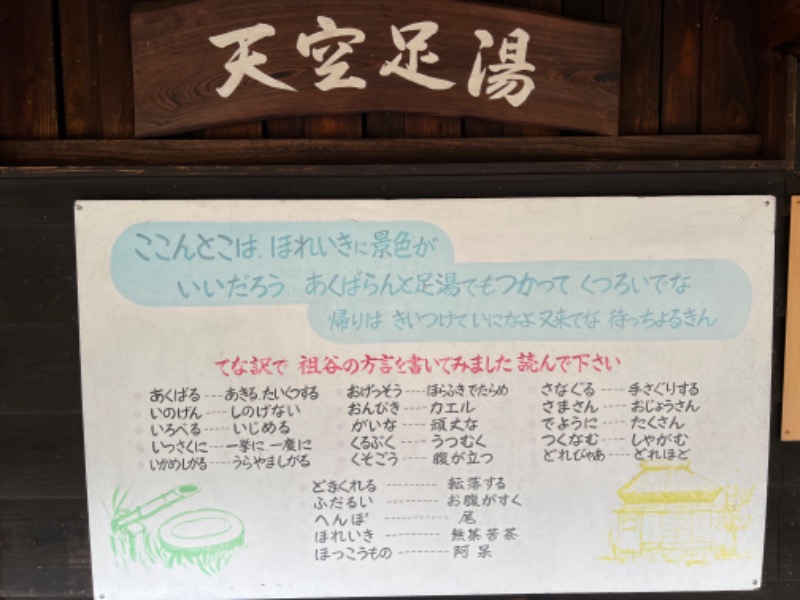 天空足湯
ここんとこは、ほれいきに景色が
いいだろう あくばらんと足湯でもつかって くつろいでな
帰りは きいつけていになよ 又来てな 待っちょるきん
てな訳で 祖谷の方言を書いてみました 読んで下さい
あくばる---あきる、たいくつする
いのげん---しのげない
いろべる---いじめる
いっさくに---一挙に 一度に
いかめしがる---うらやましがる
おげっそう---ほらふき でたらめ
おんびき---カエル
がいな---頑丈な
くるぶく---うつむく
くそごう---腹が立つ
さなぐる---手さぐりする
さまさん---おじょうさん
でように---たくさん
つくなむ---しゃがむ
どれびゃあ---どれほど
どきくれる---------転落する
ふだるい---------お腹がすく
へんぽ---------尾
ほれいき---------無茶苦茶
ほっこうもの---------阿呆